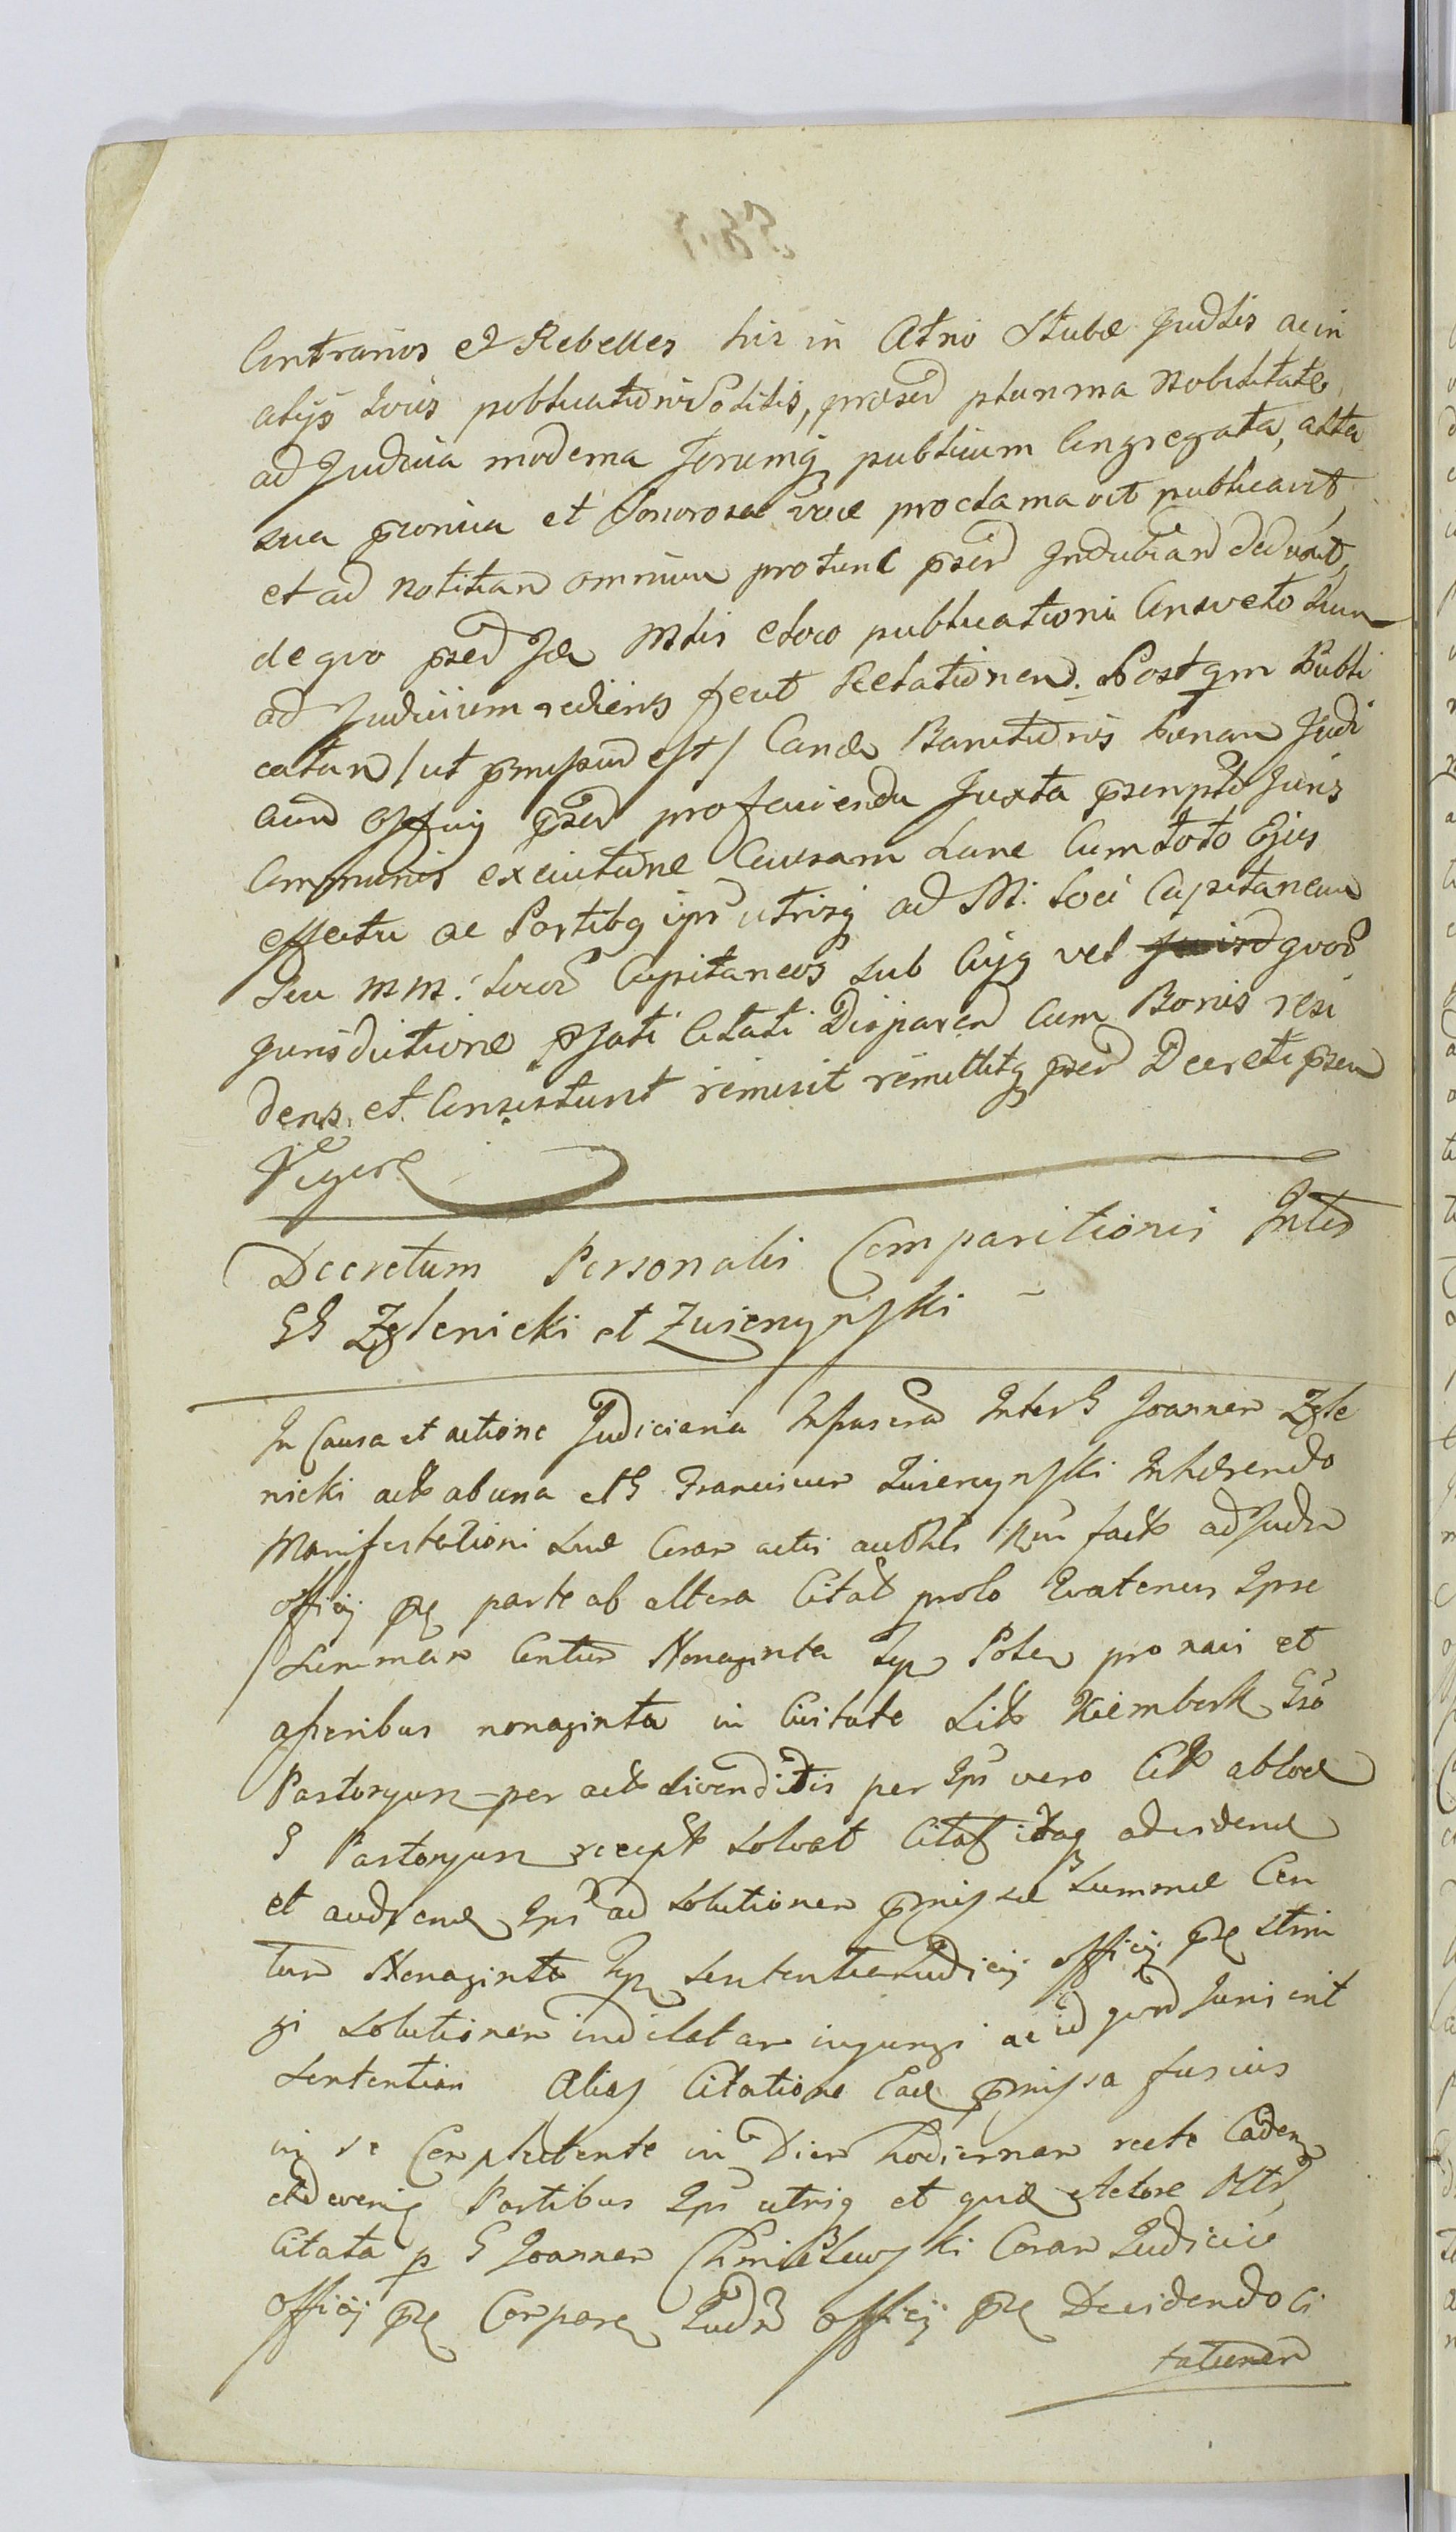 Contrarios et Rebelles hic in Atrio Stubæ Judlis ac in
alijs locis publicationi solitis, præsen plurima Nobilitate
ad Judicia moderna forumq publicum Congregata, alta
sua pronua et Sonorosa voce proclamavit publicavit,
et ad Notitian omnium protunc psen Indubian deduxit,
de quo psed Ide Mtlis eloco publicationi Consveto Suum
ad Judicium rediens fecit Relationem. Postqm Publi
catan / ut pmissum est / Candæ Banitionis pænam Judi
cium Officij psen proficiendæ Juxta pscriptu Juris
Communis executione Causam hanc Cum toto Ejus
effectu ac Partibq ips utrisq ad M: loci Capitaneum
Seu MM: locor Capitaneos sub Cujq vel quor
Jurisdictione pfati Citati Disparen cum Bonis resi
dens. et Consistunt remisit remittitq psen Decreti psen
Vigore
Decretum Personalis Comparitionis Inter
GG Zglenicki et Zwierzynski
In Causa et actione Judiciaria Infrascra Inter G Joannem Zgle
nicki act ab una et G Franciscum Zwierzynski Inhærendo
Manifestationi Suæ Coram actis authts Rni fact ad Judm
officij pñ parte ab altera Citat prolo Quatenus Ipse
Summam Centum Nonaginta Typ Polen pro navi et
asseribus nonaginta in Civitate Kiembork Gso
Pastoryusz per act divenditis per Ips vero Citt ab loc
G Pastoryusz recept solvat Citat itaq ad vidend
et audiend Ips ad Solutionem pmissæ Summæ Cen
tum Nonaginta Typ Sententia Judicij officij pñ strin
gi Solutionem indilatam injungi ac id quod Juris erit
Sententian Alias Citatione Ead pmissa fusius
in se Complectente in Diem hodiernam recte Caden
et adveniq Partibus Ips utrisq et quid Actore
Citata p G Joannem Chmielewski Coram Judicio
officij pñ Compare Judm officij pñ Decidendo Ci
tationem